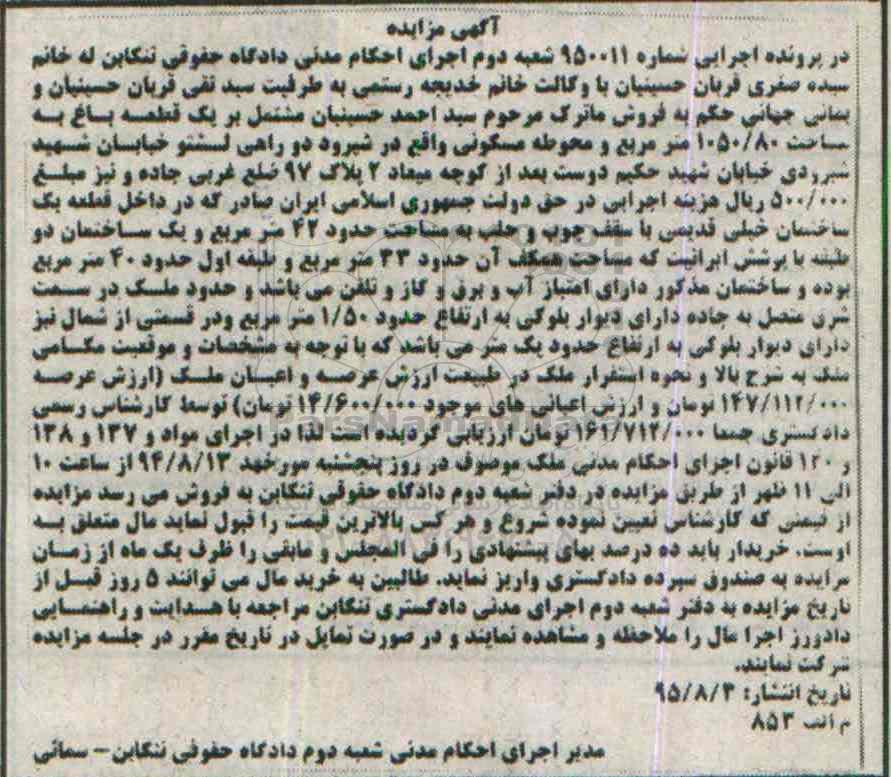 آگهی مزایده
در پرونده اجرایی شماره ۹۵۰۰۱۱ شعبه دوم اجرای احکام مدنی دادگاه حقوقی تنکابن له خانم
سیده صغری قربان حسینیان با وکالت خانم خدیجه رستمی به طرفیت سید تقی قربان حسینیان و
یمانی جهانی حکم به فروش ماترک مرحوم سید احمد حسینیان مشتمل بر یک قطعه باغ به
مساحت ۱۰۵۰/۸۰ متر مربع و محوطه مسکونی واقع در شیرود دو راهی لشتو خیابان شهید
شیرودی خیابان شهید حکیم دوست بعد از کوچه میعاد ۲ پلاک ۹۷ ضلع غربی جاده و نیز مبلغ
۵۰۰/۰۰۰ ریال هزینه اجرایی در حق دولت جمهوری اسلامی ایران صادر که در داخل قطعه یک
ساختمان خیلی قدیمی با سقف چوب و حلب به مساحت حدود ۴۲ متر مربع و یک ساختمان دو
طبقه با پوشش ایرانیت که مساحت همکف آن حدود ۳۳ متر مربع و طبقه اول حدود ۴۰ متر مربع
بوده و ساختمان مذکور دارای امتیاز آب و برق و گاز و تلفن می باشد و حدود ملک در سمت
شرق متصل به جاده دارای دیوار بلوکی به ارتفاع حدود ۱/۵۰ متر مربع ودر قسمتی از شمال نیز
دارای دیوار بلوکی به ارتفاع حدود یک متر می باشد که با توجه به مشخصات و موقعیت مکانی
ملک به شرح بالا و نحوه استقرار ملک در طبیعت ارزش عرصه و اعیان ملک (ارزش عرصه
۱۴۷/۱۱۲/۰۰۰ تومان و ارزش اعیانی های موجود ۱۴/۶۰۰/۰۰۰ تومان) توسط کارشناس رسمی
دادگستری جمعا ۱۶۱/۷۱۲/۰۰۰ تومان ارزیابی گردیده است لذا در اجرای مواد و ۱۳۷ و ۱۳۸
و ۱۲۰ قانون اجرای احکام مدنی ملک موصوف در روز پنجشنبه مورخهد ۹۴/۸/۱۳ از ساعت ۱۰
الی ۱۱ ظهر از طریق مزایده در دفتر شعبه دوم دادگاه حقوقی تنکابن به فروش می رسد مزایده
از قیمتی که کارشناس تعیین نموده شروع و هر کس بالاترین قیمت را قبول نماید مال متعلق به
اوست. خریدار باید ده درصد بهای پیشنهادی را فی المجلس و مابقی را ظرف یک ماه از زمان
مزایده به صندوق سپرده دادگستری واریز نماید. طالبین به خرید مال می توانند ۵ روز قبل از
تاریخ مزایده به دفتر شعبه دوم اجرای مدنی دادگستری تنکابن مراجعه با هدایت و راهنمایی
دادورز اجرا مال را ملاحظه و مشاهده نمایند و در صورت تمایل در تاریخ مقرر در جلسه مزایده
شرکت نمایند.
تاریخ انتشار: ۹۵/۸/۳
م الف ۸۵۳
مدیر اجرای احکام مدنی شعبه دوم دادگاه حقوقی تنکابن – سمائی
ParsNamadData